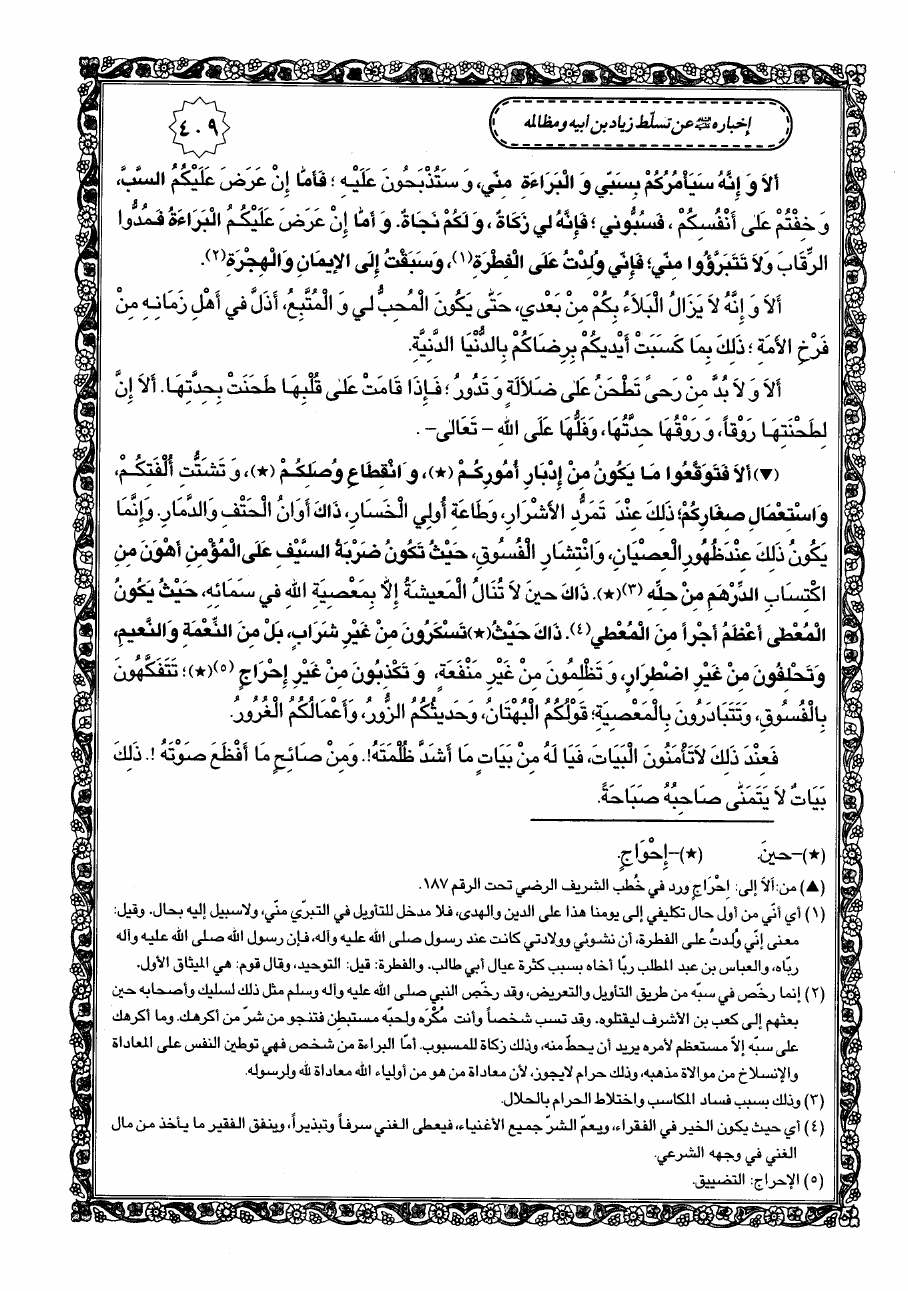 إخباره عن تسلّط زياد بن ابيه ومظالمه
٤٠٩
أَلاَ وَ إِنَّهُ سَيَأْمُرُكُمْ بِسَبّي وَ الْبَرَاءَةِ مِنّي، وَ سَتُذْبَحُونَ عَلَيْهِ ؛ فَأَمَّا إِنْ عَرَضَ عَلَيْكُمُ السَّبَّ،
وَ خِفْتُمْ عَلى أَنْفُسِكُمْ ، فَسُبُّوني ؛ فَإِنَّهُ لي زَكَاةٌ ، وَ لَكُمْ نَجَاةٌ. وَ أَمَّا إِنْ عَرَضَ عَلَيْكُمُ الْبَرَاءَةَ فَمُدُّوا
الرِّقَابَ وَلاَ تَتَبَرَّؤُوا مِنّي؛ فَإِنّي وُلِدْتُ عَلَى الْفِطْرَةِ(١)، وَسَبَقْتُ إِلَى الإيمَانِ وَالْهِجْرَةِ(٢).
أَلاَ وَ إِنَّهُ لاَ يَزَالُ الْبَلاَءُ بِكُمْ مِنْ بَعْدي، حَتّى يَكُونَ الْمُحِبُّ لي وَ الْمُتَّبِعُ، أَذَلَّ في أَهْلِ زَمَانِهِ مِنْ
فَرْخِ الأَمَةِ ؛ ذَلِكَ بِمَا كَسَبَتْ أَيْديكُمْ بِرِضَاكُمْ بِالدُّنْيَا الدَّنِيَّةِ.
أَلاَ وَ لاَ بُدَّ مِنْ رَحىً تَطْحَنُ عَلى ضَلاَلَةٍ وَ تَدُورُ ؛ فَإِذَا قَامَتْ عَلى قُلْبِهَا طَحَنَتْ بِحِدَّتِهَا. أَلاَ إِنَّ
لِطَحْنَتِهَا رَوْقاً، وَ رَوْقُهَا حِدَّتُهَا، وَفَلُّهَا عَلَى اللهِ - تَعَالى- .
(▼) أَلاَ فَتَوَقَّعُوا مَا يَكُونُ مِنْ إِدْبَارِ أُمُورِكُمْ (★)، وَ انْقِطَاعِ وُصَلِكُمْ (★)، وَ تَشَتُّتِ أُلْفَتِكُمْ،
وَاسْتِعْمَالِ صِغَارِكُمْ؛ ذَلِكَ عِنْدَ تَمَرُّدِ الأَشْرَارِ، وَطَاعَةِ أُولِي الْخَسَارِ، ذَاكَ أَوَانُ الْحَتْفِ وَالدَّمَارِ. وَإِنَّمَا
يَكُونُ ذَلِكَ عِنْدَ ظُهُورِ الْعِصْيَانِ، وَانْتِشَارِ الْفُسُوقِ، حَيْثُ تَكُونُ ضَرْبَةُ السَّيْفِ عَلَى الْمُؤْمِنِ أَهْوَنَ مِنِ
اكْتِسَابِ الدِّرْهَمِ مِنْ حِلِّهِ (٣)(★). ذَاكَ حينَ لاَ تُنَالُ الْمَعيشَةُ إِلاَّ بِمَعْصِيَةِ اللهِ في سَمَائِهِ، حَيْثُ يَكُونُ
الْمُعْطَى أَعْظَمُ أَجْراً مِنَ الْمُعْطي(٤). ذَاكَ حَيْثُ(★) تَسْكَرُونَ مِنْ غَيْرِ شَرَابٍ، بَلْ مِنَ النِّعْمَةِ وَالنَّعيمِ،
وَتَحْلِفُونَ مِنْ غَيْرِ اضْطِرَارٍ، وَ تَظْلِمُونَ مِنْ غَيْرِ مَنْفَعَةٍ، وَ تَكْذِبُونَ مِنْ غَيْرِ إِحْرَاجٍ (٥)(★)؛ تَتَفَكَّهُونَ
بِالْفُسُوقِ، وَتَتَبَادَرُونَ بِالْمَعْصِيَةِ؛ قَوْلُكُمُ الْبُهْتَانُ، وَحَديثُكُمُ الزُّورُ، وَأَعْمَالُكُمُ الْغُرُورُ.
فَعِنْدَ ذَلِكَ لاَتَأْمَنُونَ الْبَيَاتَ، فَيَا لَهُ مِنْ بَيَاتٍ مَا أَشَدَّ ظُلْمَتَهُ!. وَمِنْ صَائِحٍ مَا أَفْظَعَ صَوْتَهُ !. ذَلِكَ
بَيَاتٌ لاَ يَتَمَنّى صَاحِبُهُ صَبَاحَةً.
(★)-حينَ. (★)-إِحْوَاجٍ.
(▲) من: أَلاَ إلى: إحْرَاجٍ ورد في خُطب الشريف الرضي تحت الرقم ١٨٧.
(١) أي أنّي من أول حال تكليفي إلى يومنا هذا على الدين والهدى، فلا مدخل للتأويل في التبرّي منّي، ولاسبيل إليه بحال. وقيل:
معنى إنّي وُلدتُ على الفطرة، أن نشوئي وولادتي كانت عند رسول صلى الله عليه وآله، فإن رسول الله صلى الله عليه وآله
ربّاه، والعباس بن عبد المطلب ربّا أخاه بسبب كثرة عيال أبي طالب. والفطرة: قيل: التوحيد، وقال قوم: هي الميثاق الأول.
(٢) إنما رخّص في سبّه من طريق التأويل والتعريض، وقد رخّص النبي صلى الله عليه وآله وسلم مثل ذلك لسليك وأصحابه حين
بعثهم إلى كعب بن الأشرف ليقتلوه. وقد تسب شخصاً وأنت مُكْرَه ولحبّه مستبطن فتنجو من شرّ من أكرهك. وما أكرهك
على سبّه إلاّ مستعظم لأمره يريد أن يحطّ منه، وذلك زكاة للمسبوب. أمّا البراءة من شخص فهي توطين النفس على المعاداة
والإنسلاخ من موالاة مذهبه، وذلك حرام لايجوز، لأن معاداة من هو من أولياء الله معاداة لله ولرسوله.
(٣) وذلك بسبب فساد المكاسب واختلاط الحرام بالحلال.
(٤) أي حيث يكون الخير في الفقراء، ويعمّ الشرّ جميع الأغنياء، فيعطى الغني سرفاً وتبذيراً، وينفق الفقير ما يأخذ من مال
الغني في وجهه الشرعي.
(٥) الإحراج: التضييق.